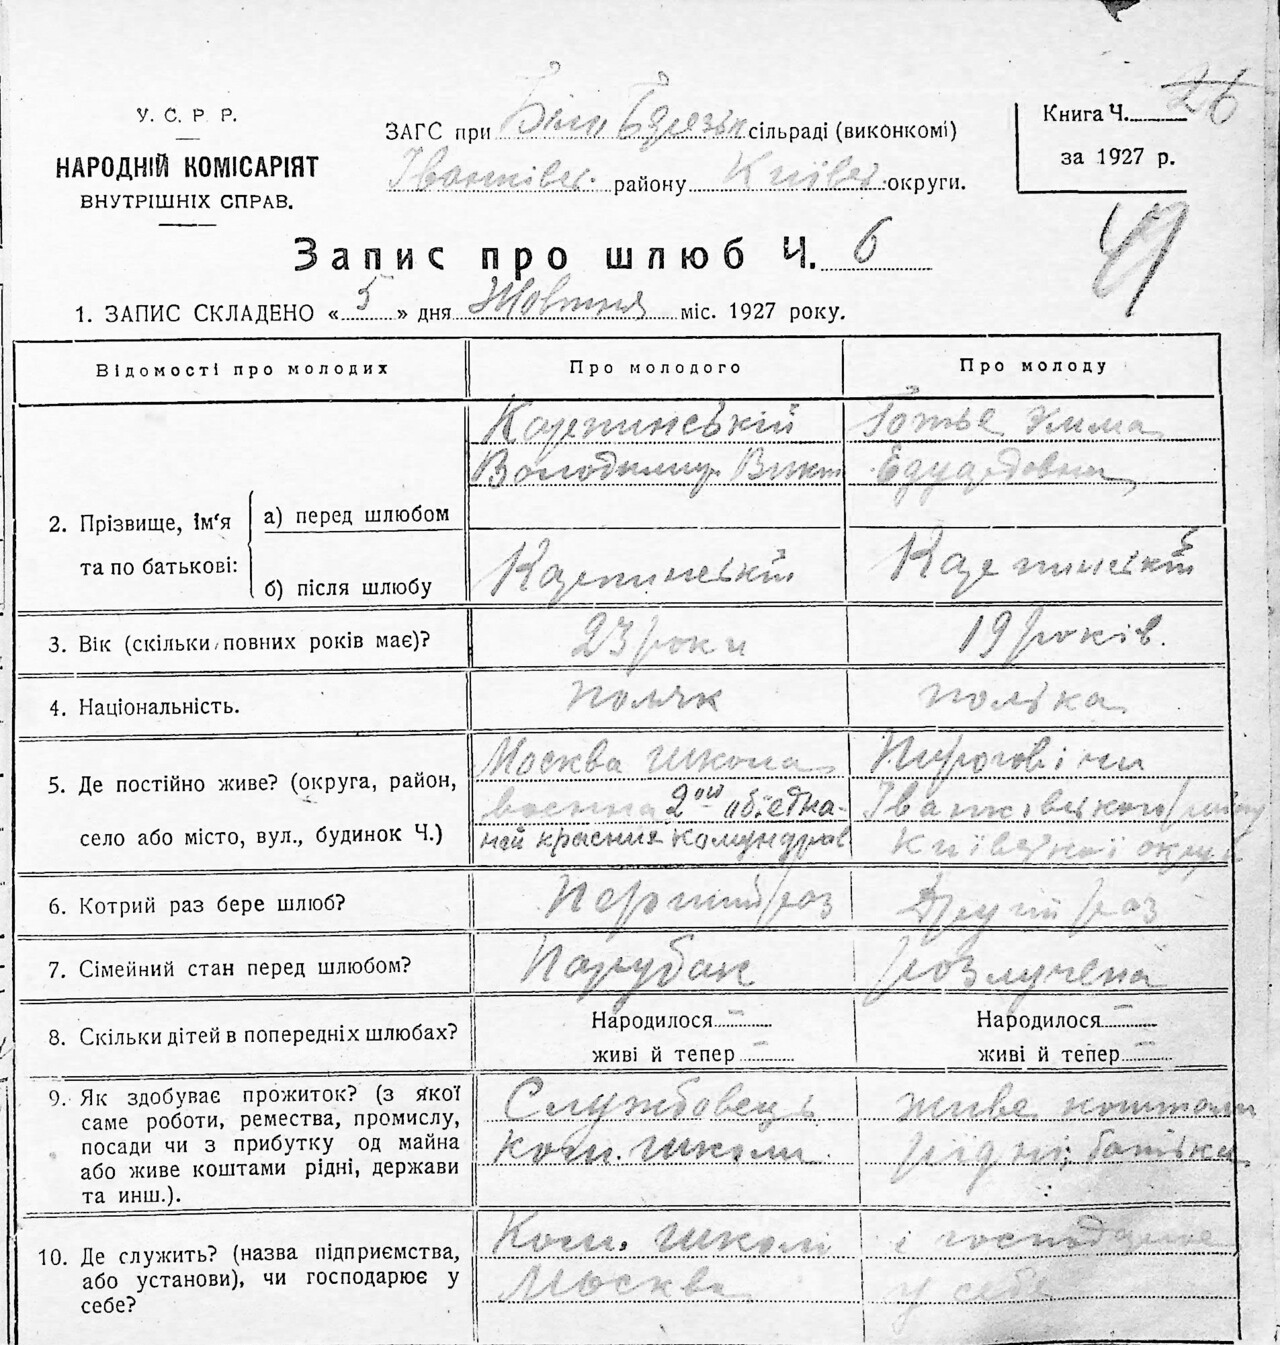 У. С. Р. Р.
НАРОДНІЙ КОМІСАРІЯТ
ВНУТРІШНІХ СПРАВ.
ЗАГС при Біло Березьк сільраді (виконкомі)
Іванківс. району Київс. округи.
Книга Ч. 26
за 1927 р.
49
Запис про шлюб Ч. 6
1. ЗАПИС СКЛАДЕНО « 5 » дня Жовтня міс. 1927 року.
Відомості про молодих
Про молодого
Про молоду
2. Прізвище, ім'я та по батькові:
а) перед шлюбом
Володимир Викт
Готье
б) після шлюбу
3. Вік (скільки повних років має)?
23 роки
19 років.
4. Національність.
поляк
полька
5. Де постійно живе? (округа, район,
село або місто, вул., будинок Ч.)
Москва школа
военна 2ой обїедна-
ней красних командиров
Іванковського району
Київської округи
6. Котрий раз бере шлюб?
Перший раз
Другий раз
7. Сімейний стан перед шлюбом?
Парубак
розлучена
8. Скільки дітей в попередніх шлюбах?
Народилося –
живі й тепер –
Народилося –
живі й тепер –
9. Як здобуває прожиток? (з якої
саме роботи, ремества, промислу,
посади чи з прибутку од майна
або живе коштами рідні, держави
та инш.).
Службовець
ком. школи.
живе коштами
рідні, батька
10. Де служить? (назва підприємства,
або установи), чи господарює у
себе?
Ком. школі
Москва
і господарює
у себе